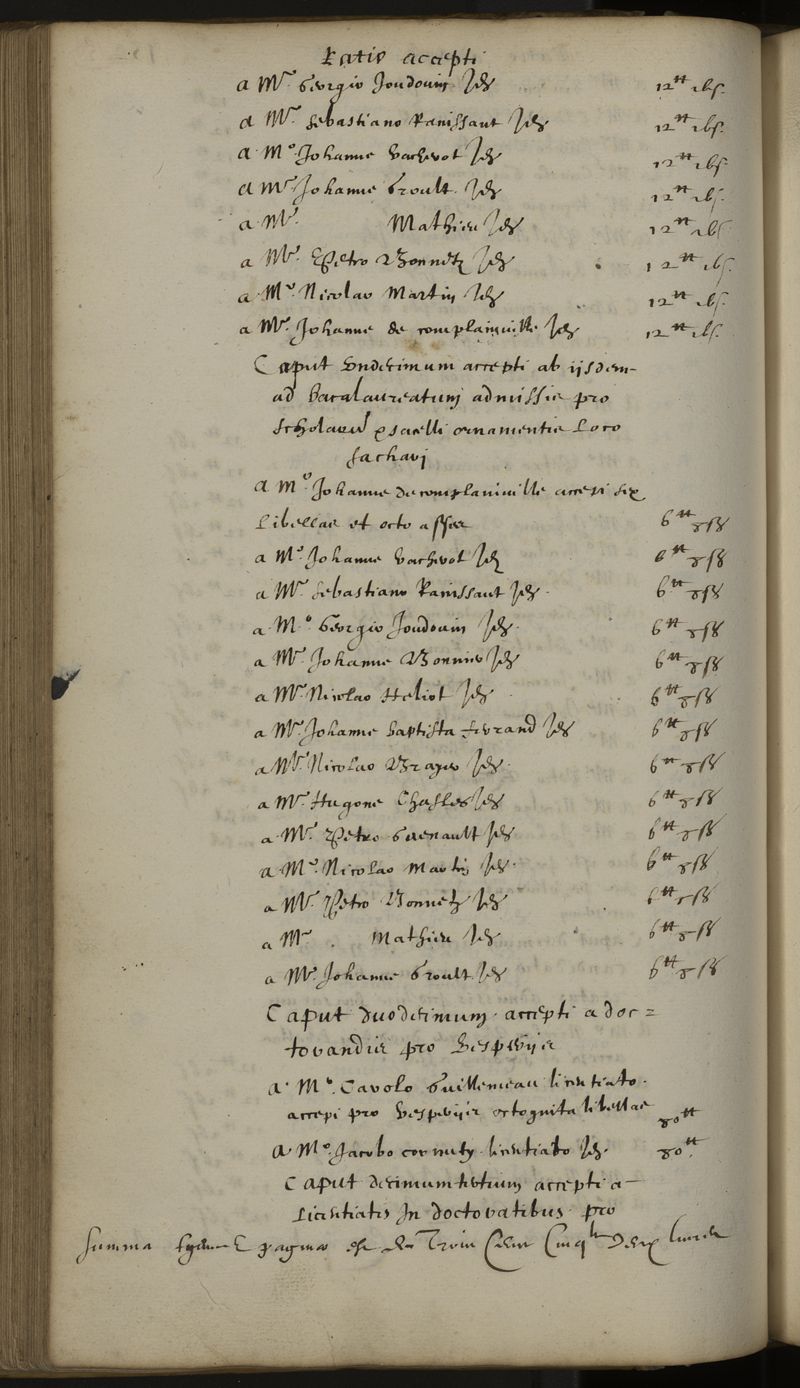 Ratio accepti
a Mro Georgio Joudouin Idem 12tt 16s.
a Mro Sebastiano Ranissant Idem 12tt 16s.
a Mo Johanne Vachevot Idem 12tt 16s.
a Mro Johanne Groult Idem 12tt 16s.
a Mro Mathieu Idem 12tt 16s.
a Mro Petro Bonnetz Idem 12tt 16s.
a Mro Nicolao Martin Idem 12tt 16s.
a Mro Johanne de complainville Idem 12tt 16s.
Caput Undecimum accepti ab ijsdem
ad Bacalaureatum admissis pro
Scholarum et sacelli ornamentis Loco
sachari
a Mo Johanne de complanville accepi sex
Libellas et octo asses 6tt 8s
a Mo Johanne Vachevot Idem 6tt 8s
a Mro Sebastiano Ranissant Idem 6tt 8s
a Mo Georgio Joudouin Idem 6tt 8s
a Mro Johanne Idem 6tt 8s
a Mro Nicolao Heliot Idem 6tt 8s
a Mro Johanne Baptista ferrand Idem 6tt 8s
a Mro Nicolao Brayer Idem 6tt 8s
a Mro Hugone Chasles Idem 6tt 8s
a Mro Petro Guenault Idem 6tt 8s
a Mro Nicolao Martin Idem 6tt 8s
a Mro Petro Bonnetz Idem 6tt 8s
a Mro Mathieu Idem 6tt 8s
a Mro Johanne Groult Idem 6tt 8s
Caput duodecimum accepti a doc=
torandis pro Vesperijs
a Mo Carolo Guillemeau licentiato
accepi pro Vesperijs octoginta libellas 80tt
a Mo Jacobo cornuty licentiato Idem 80tt
Caput decimumtertium accepti a
Licentiatis In doctoratibus pro
Summa paginae est de Trois Cens Cinqte Deux livres